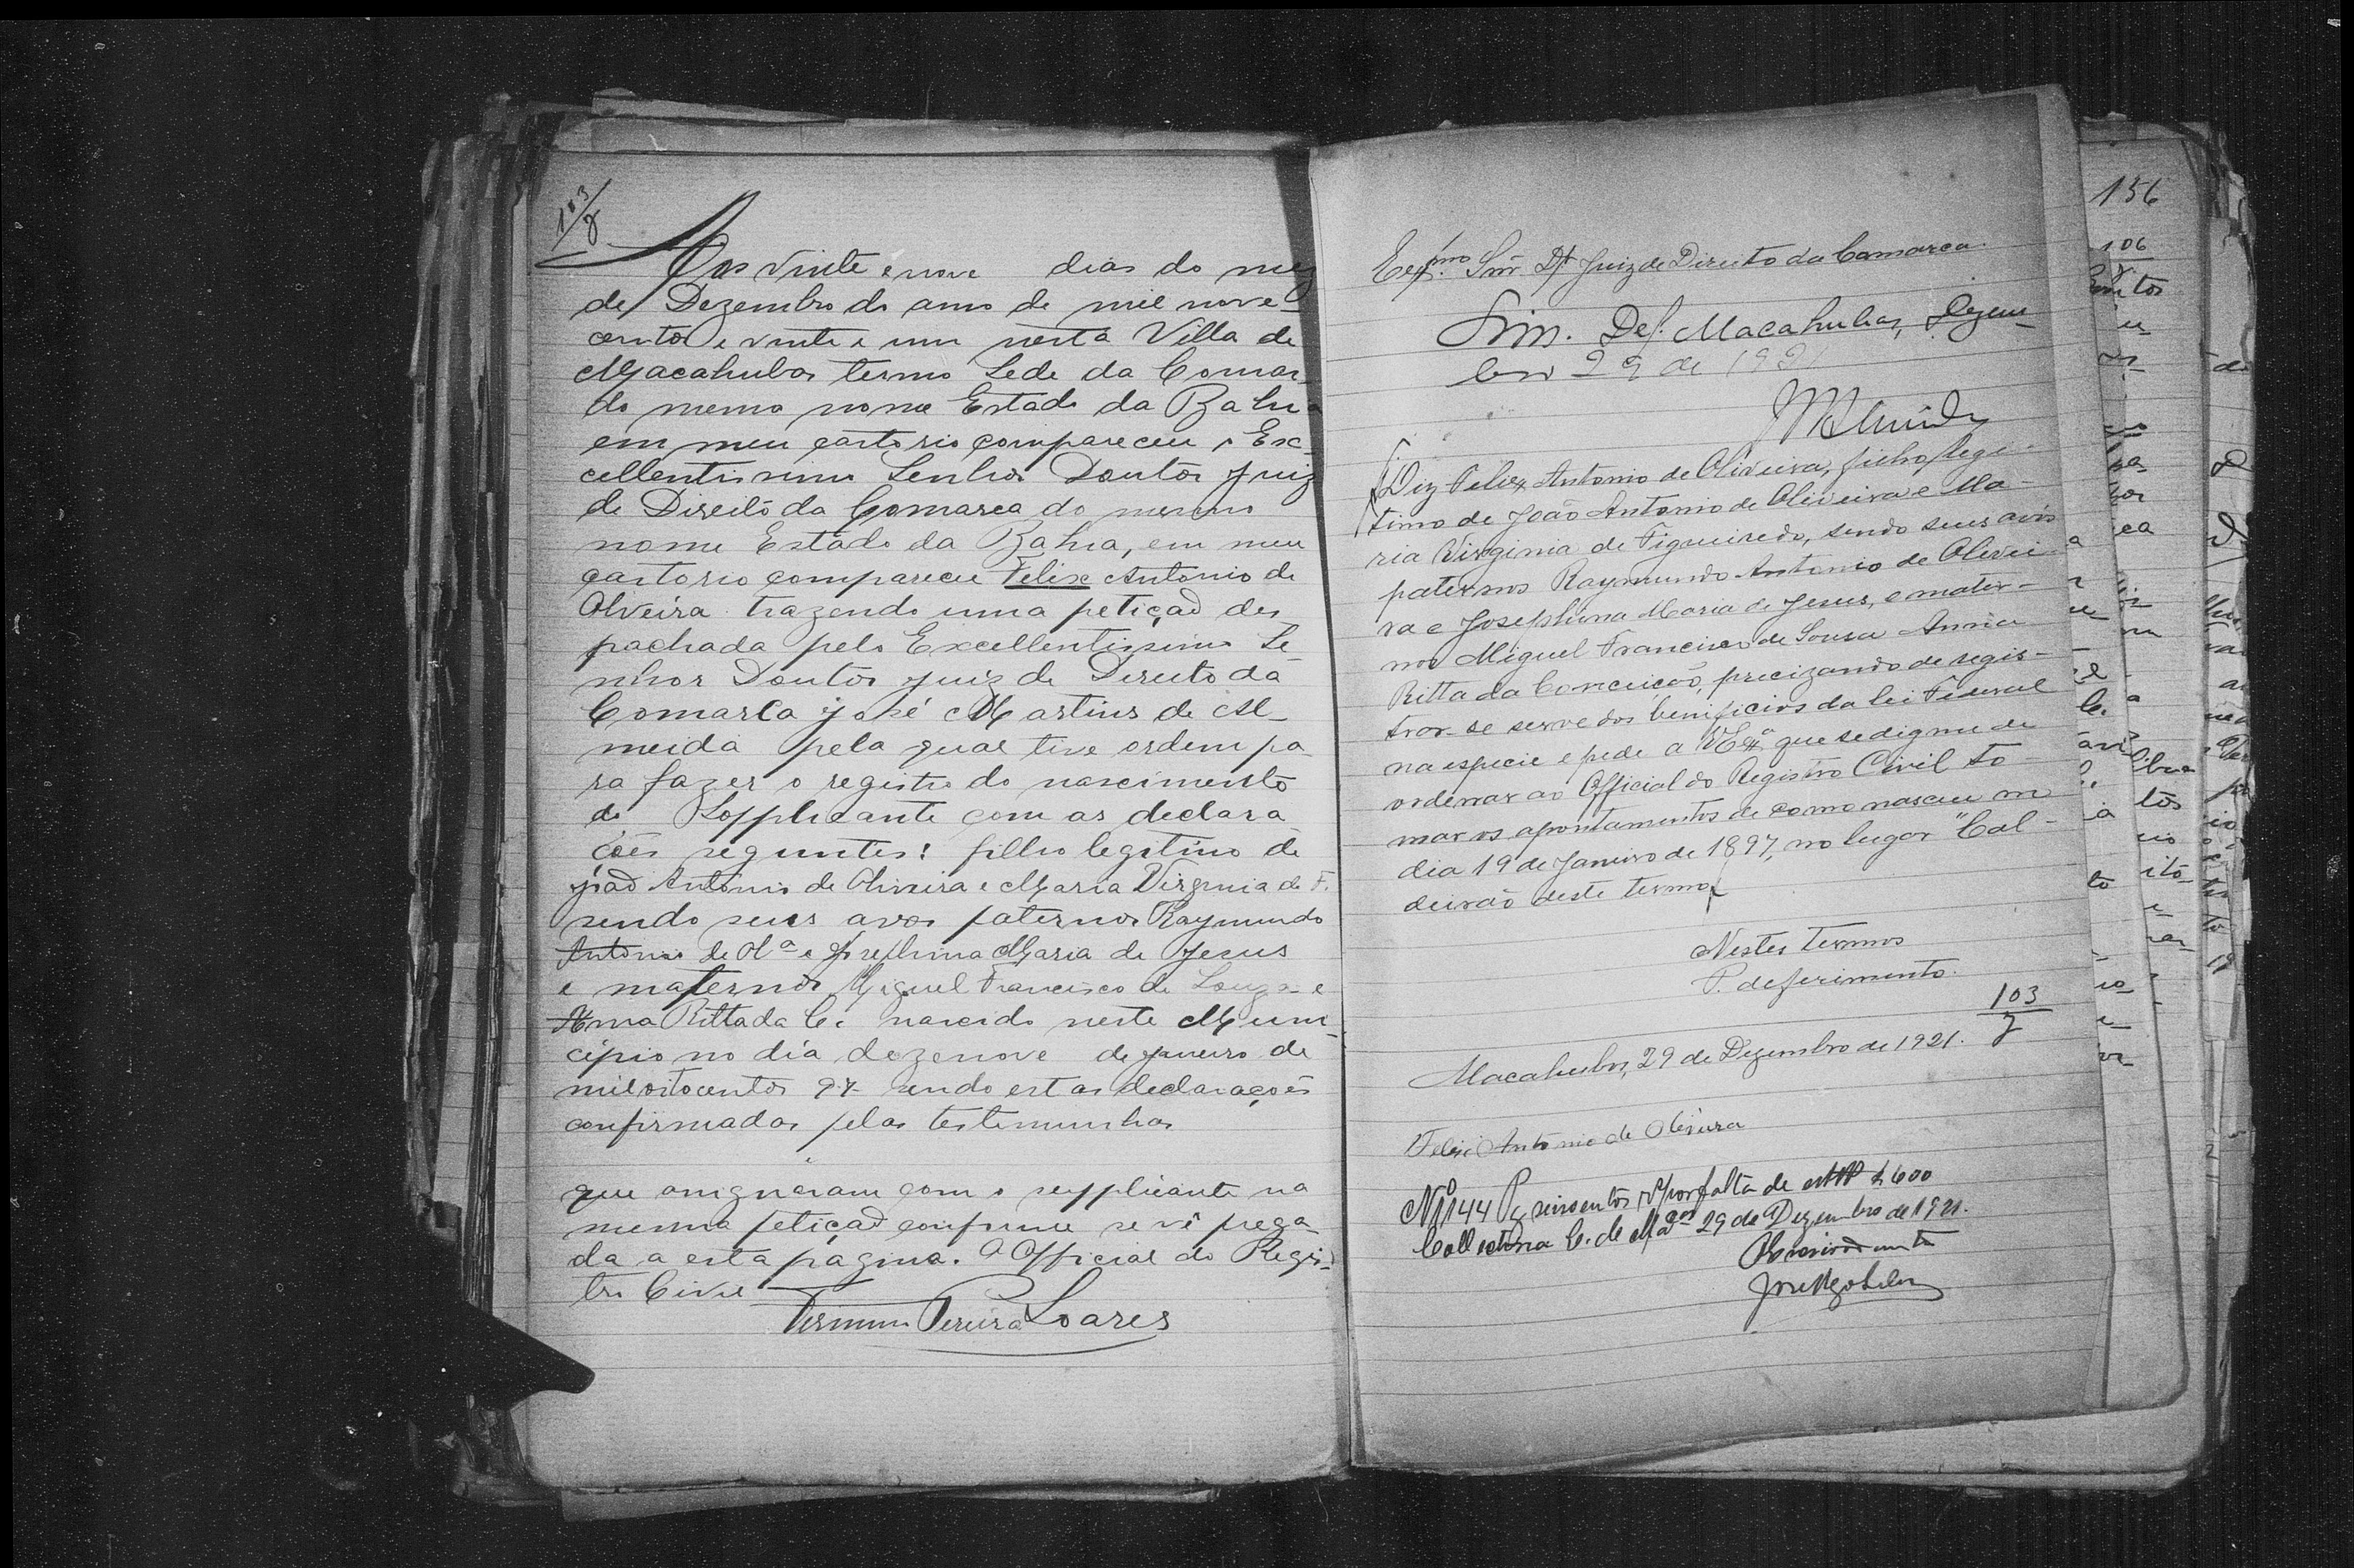 103/8
Aos vinte e nove dias do mez
de Dezembro do anno de mil nove-
centos e vinte e um nesta Villa de
Macahubas termo Sede da Comar-
do mesmo nome Estado da Bahia
em meu cartorio compareceu o Ex-
cellentissimo Senhor Doutor Juiz
de Direito da Comarca do mesmo
nome Estado da Bahia, em meu
cartorio compareceu Felix Antonio de
Olveira trazendo uma petição des
pachada pelo Excellentissimo Se
nhor Doutor Juiz de Direito da
Comarca José Martins de Al-
meida pela qual tive ordem pa
ra fazer o registro do nascimento
do Supplicante com as declara
ções seguintes: filho legitimo de
João Antonio de Oliveira e Maria Virginia de F.
sendo seus avos paternos Raymundo
Antonio de Olª e Josephina Maria de Jesus
e maternos Miguel Francisco de Souza e
Anna Ritta da C. nascido neste Muni-
cipio no dia dezenove de janeiro de
mil oitocentos 97 sendo estas declarações
confirmadas pelas testimunhas
que assignaram com o supplicante na
mesma petição conforme se vê prega-
da a esta pagina. O Official do Regis-
tro Civil
Firmino Pereira Soares
Exmo. Snr. Dr Juiz de Direito da Comarca
Sim. Def. Macahubas, Dezem-
bro 29 de 1921
MAlmeida
Diz Felix Antonio de Oliveira, filho legi-
timo de João Antonio de Oliveira e Ma-
ria Virginia de Figueiredo, sendo seus avós
paternos Raymundo Antonio de Olivei-
ra e Josephina Maria de Jesus, e mater-
nos Miguel Francisco de Sousa Anna
Ritta da Conceição, precizando de regis-
trar-se serve dos beneficios da lei Federal
na especie e pede a V Exª que se digne de
ordenar ao Official do Registro Civil to-
mar os apontamentos de como nasceu no
dia 19 de Janeiro de 1897, no lugar "Cal-
deirão deste termo
Nestes Termos
P. deferimento.
103
7
Macahubas, 29 de Dezembro de 1921.
Felix Antonio de Olivura
Nº 144 Pg seiscentos rs por falta de estp $600
Collectoria C. de Macas 29 de Dezembro de 1921.
O Escrivão
156
106